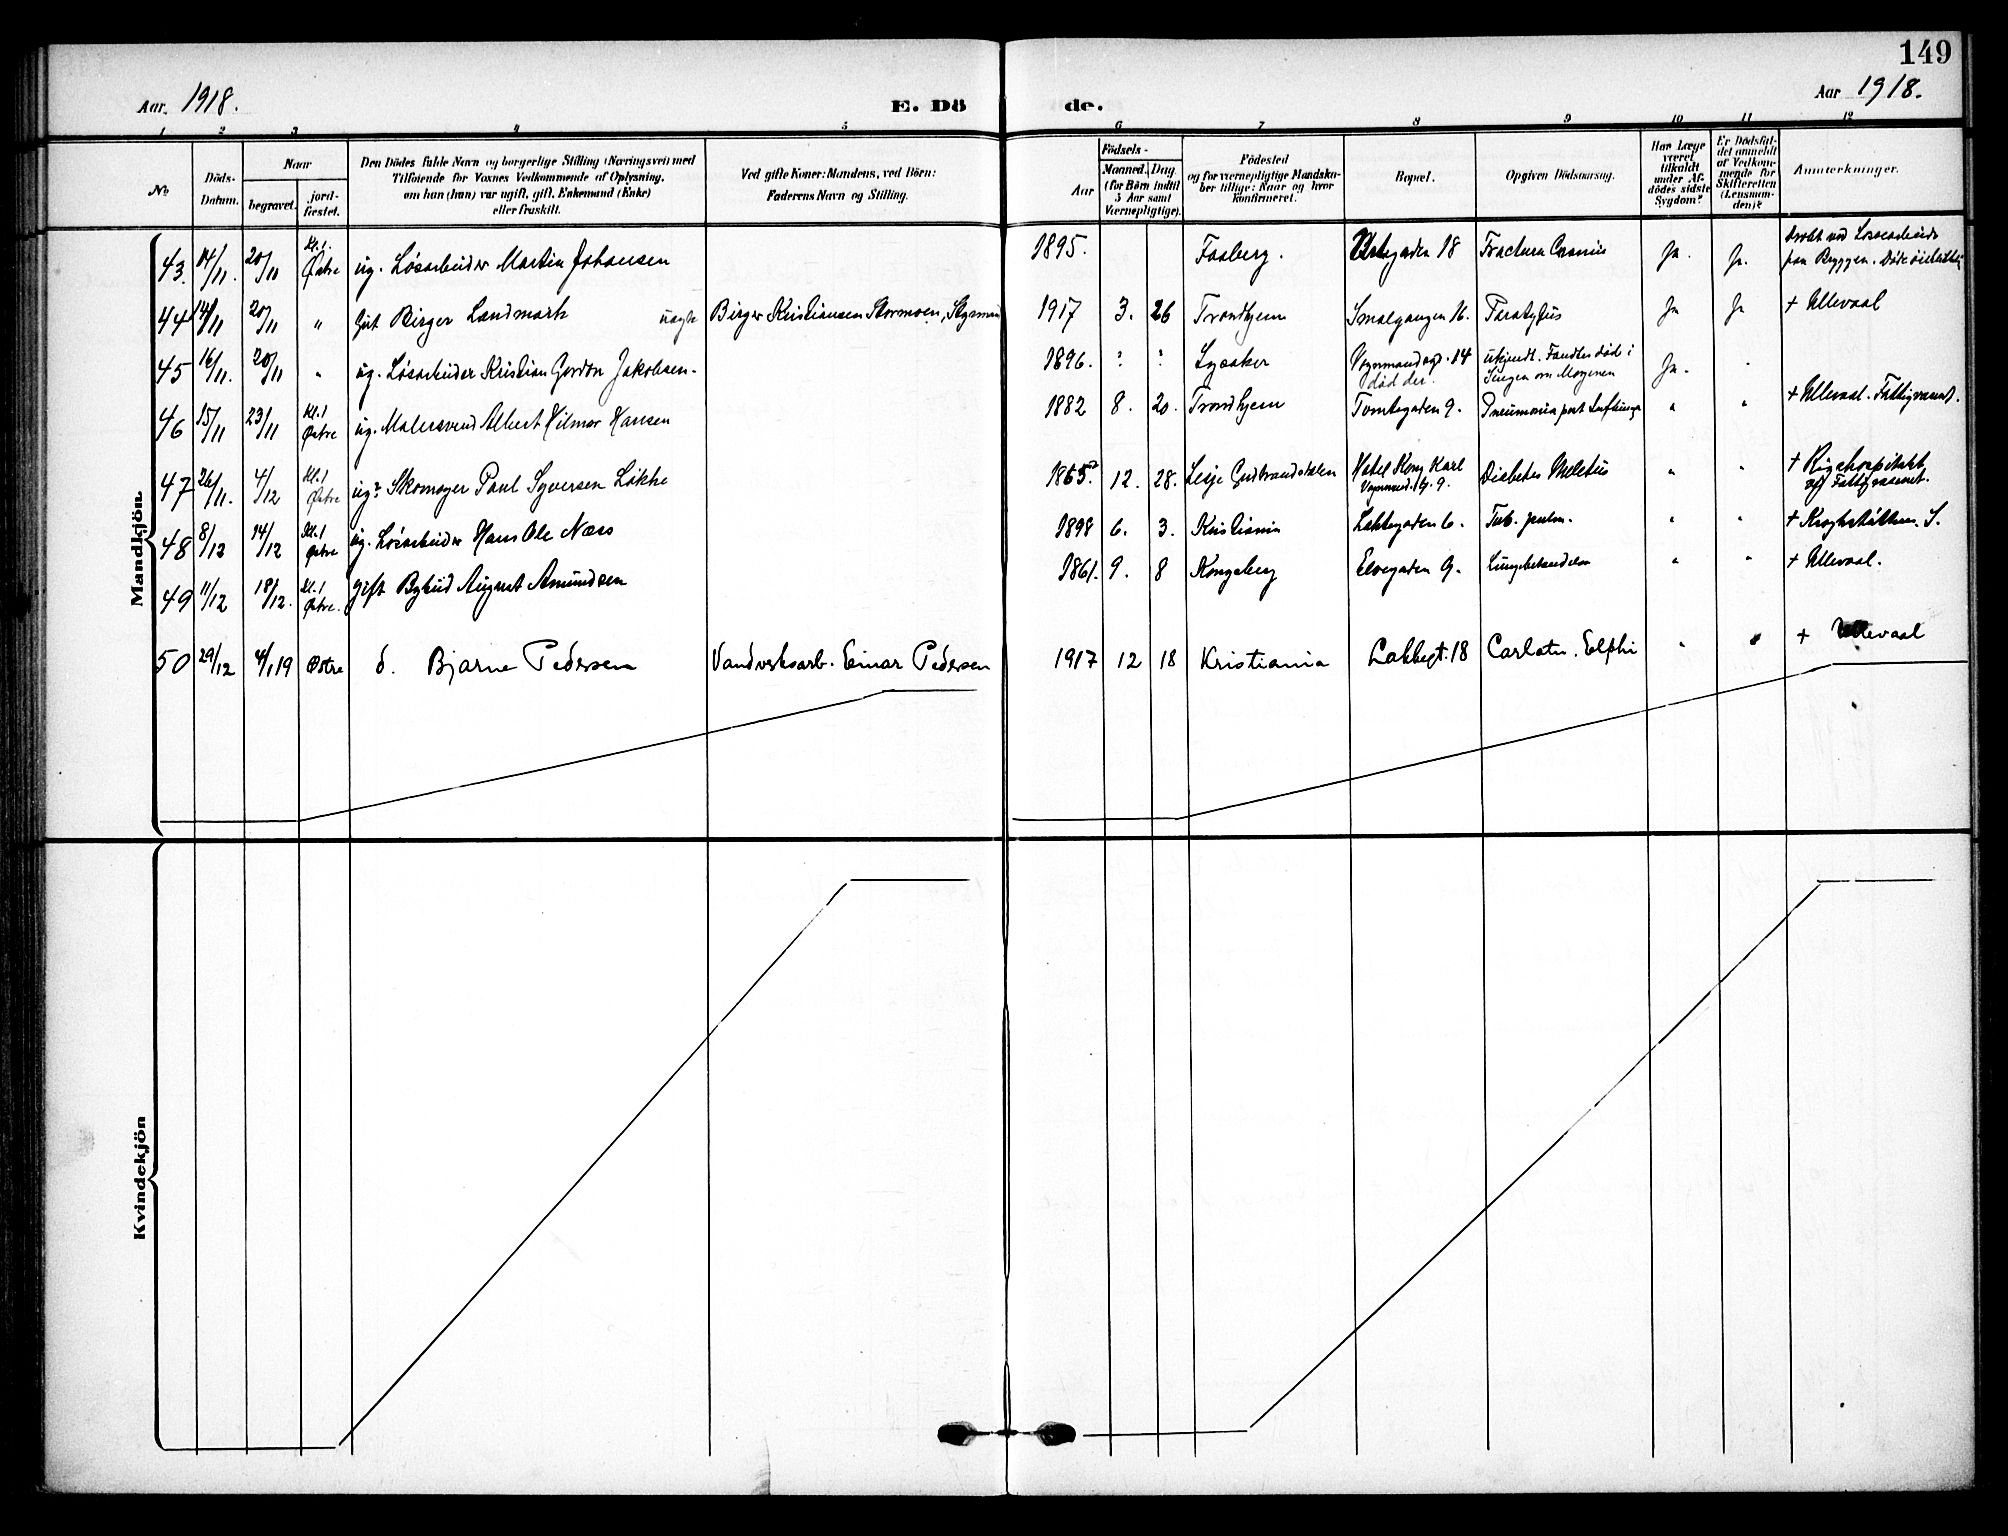 149
Aar. 1918.
E. Dö de.
Aar 1918.
1 2 3 4 5 6 7 8 9 10 11 12
No
Döds-Datum.
Naar
begravet.
jord-fæstet.
Den Dödes fulde Navn og borgerlige Stilling (Næringsvei) med
Tilföiende for Voxnes Vedkommende af Oplysning,
om han (hun) var ugift, gift, Enkemand (Enke)
eller fraskilt.
Ved gifte Koner: Mandens, ved Börn:
Faderens Navn og Stilling.
Födsels-
Aar
Maaned. Dag
(for Börn indtil
5 Aar samt
Værnepligtige).
Födested
og for værnepligtige Mandska-
ber tillige: Naar og hvor
konfirmeret.
Bopæl.
Opgiven Dödsaarsag.
Har Læge
været
tilkaldt
under Af-
dödes sidste
Sygdom?
Er Dödsfal-
det anmeldt
af Vedkom-
mende for
Skifteretten
(Lensman-
den)?
Anmærkninger.
Mandkjön
43. 14/11. 20/11 Kl. 1. Østre ug. Løsarbeider Martin Johansen 1895. Faaberg. 18 Fractura Cranii Ja. Ja.
44 14/11 20/11 " Gut Birger Landmark uægte Birger Kristiansen Stormoen, Styrmand 1917 3. 26 Trondhjem Smalgangen 16. Paratyfus Ja Ja + Ullevaal
45 16/11. 20/11 " ug. Løsarbeider Kristian Gordon Jakobsen. 1896. ? ? Lysaker Vognmandsgt. 14 død der. ukjendt. Fandtes død i Sengen om Morgenen Ja. "
46 15/11 23/11 Kl. 1 Østre ug. Malersvend Albert Hilmar Hansen 1882 8. 20. Trondhjem Tomtegaden 9. Pneumonia " " + Ullevaal. Fattigvæsnet.
47 26/11. 4/12 Kl. 1 Østre ug? Skomager Paul Syversen Løkke 1865? 12. 28. Lesje Gudbrandsdalen Hotel Kong Karl Vognmand. G. 9. Diabetes Meletus " " + Rigshospitalet ved Fattigvæsnet.
48 8/12 14/12 Kl. 1 Østre ug. Løsarbeider Hans Ole Næss 1898 6. 3. Kristiania Lakkegaden 6. Tub. pulm. " " + Kroghstøtten. S.
49 11/12 18/12. Kl. 1 Østre. gift Bybud August Amundsen 1861. 9. 8 Kongsberg Elvegaden 9. Lungebetændelse " " + Ullevaal.
50 29/12 4/1 19 Østre d. Bjarne Pedersen Vandverksarb. Einar Pedersen 1917 12 18 Kristiania Lakkegt. 18 " " + Ullevaal
Kvindekjön